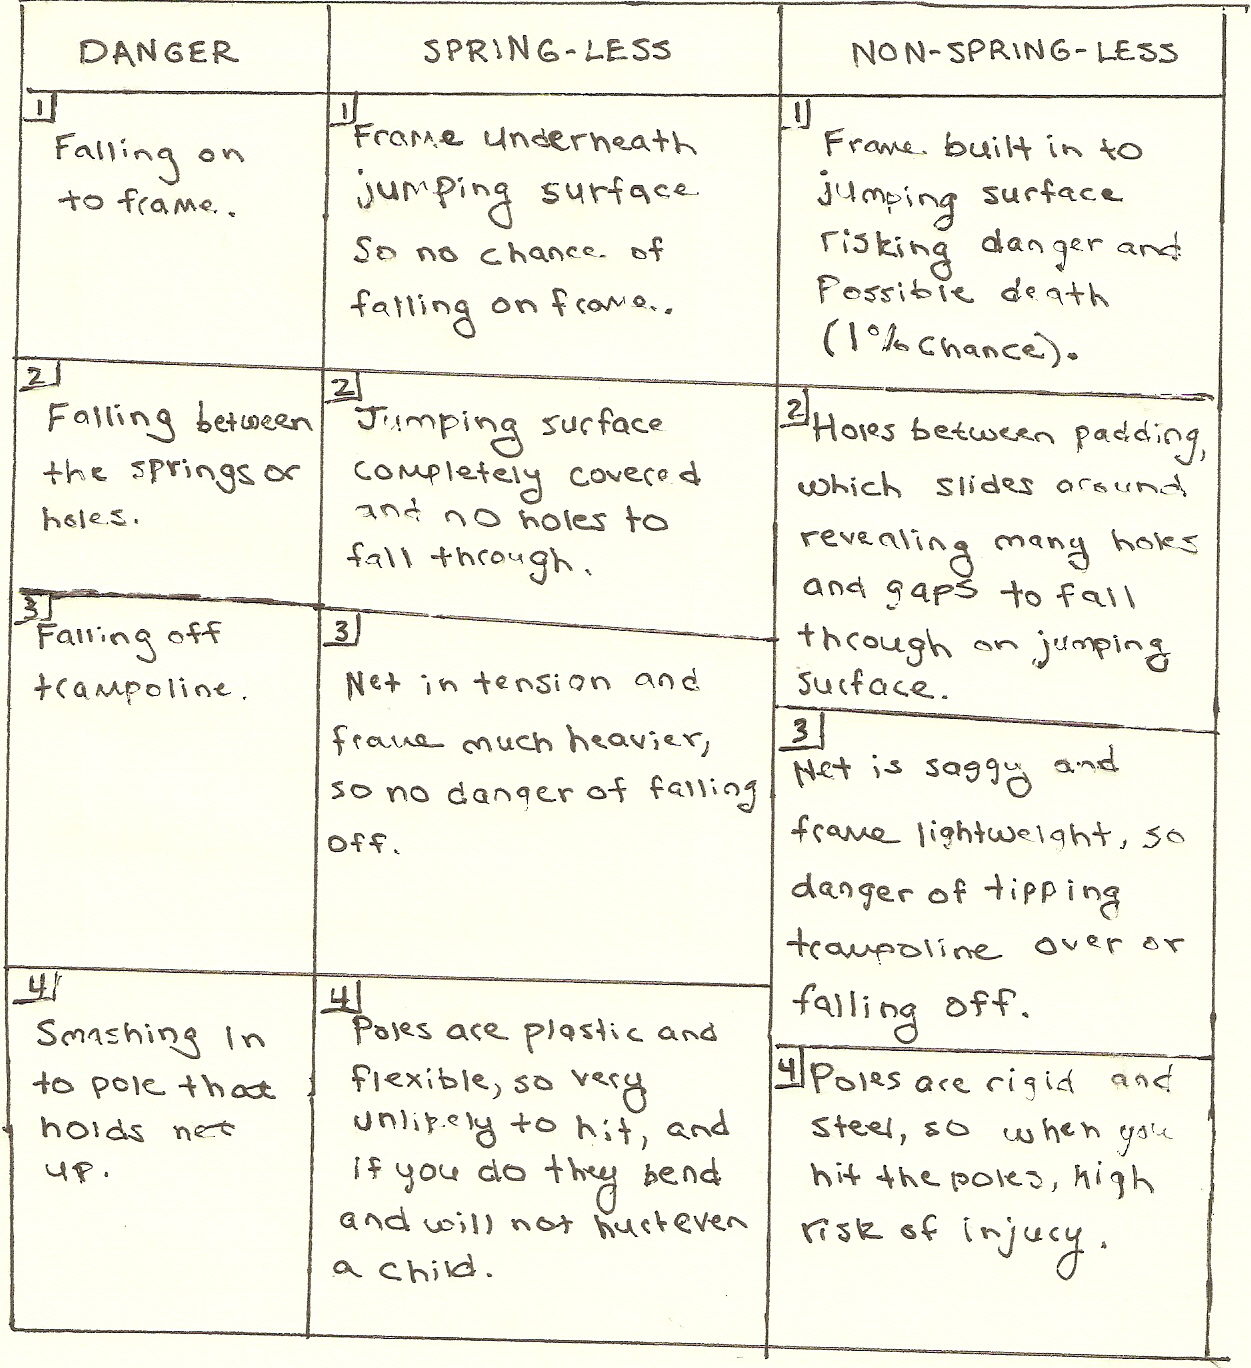 DANGER
SPRING-LESS
NON-SPRING-LESS
1
Falling on
to frame.
1
Frame underneath
jumping surface
So no chance of
falling on frame.
1
Frame built in to
jumping surface
risking danger and
Possible death
(1% chance).
2
Falling between
the springs or
holes.
2
Jumping surface
completely covered
and no holes to
fall through.
2
Holes between padding,
which slides around
revealing many holes
and gaps to fall
through on jumping
surface.
3
Falling off
trampoline.
3
Net in tension and
frame much heavier,
so no danger of falling
off.
3
Net is saggy and
frame lightweight, so
danger of tipping
trampoline over or
falling off.
4
Smashing in
to pole that
holds net
up.
4
Poles are plastic and
flexible, so very
unlikely to hit, and
if you do they bend
and will not hurt even
a child.
4
Poles are rigid and
steel, so when you
hit the poles, high
risk of injury.